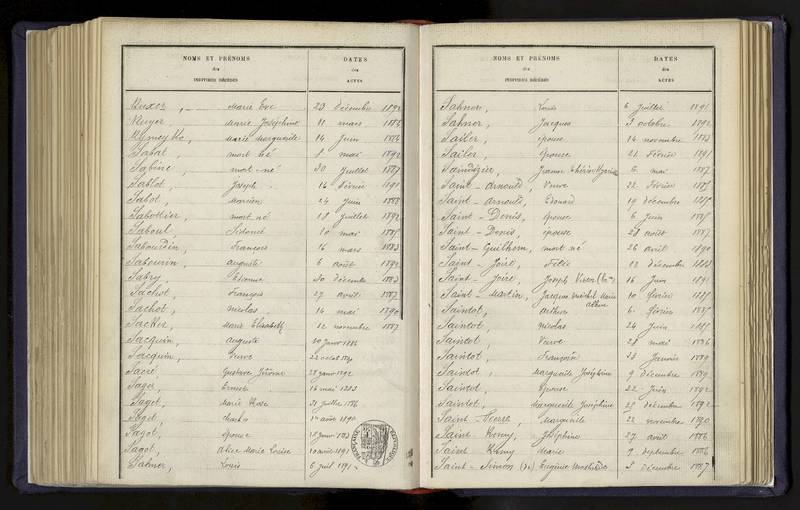 NOMS ET PRÉNOMS
des
INDIVIDUS DÉCÉDÉS
DATES
des
ACTES
Marie Eve 23 Décembre 1892
Ruyer, Marie Joséphine 11 mars
Rymeyko, Marie Marguerite 14 Juin
Sabal, mort né mai 1892
Sabine, mort-né 30 Juillet 1887
Sablot, Joseph 14 février 1891
Sabot, 24 Juin 1888
Sabottier, mort né 18 Juillet 1892
Saboul, Sidonie 10 mai
Sabourdin, François 16 mars 1883
Sabourin, auguste 6 août 1892
Sabry, Etienne 30 décembre 1883
Sachot, François 27 avril 1887
Sachot, nicolas 14 mai 1890
Sacker, Marie Elisabeth 12 novembre 1887
Sacquin, auguste 20 Janv 1886
Sacquin, Veuve 22 octob
Sacré, Gustave Jérôme 28 Janv 1892
Saget, Ernest 16 mai 1883
Sagot, Marie Rose 31 Juillet 1886
Sagot, Charles août 1890
Sagot, épouse
Sagot, Alice Marie Louise 10 août 1891
Sahner, Louis 6 Juil 1891
NOMS ET PRÉNOMS
des
INDIVIDUS DÉCÉDÉS
DATES
des
ACTES
Sahner, Louis 6 Juillet 1891
Sahner, Jacques 3 octobre 1892
Sailer, épouse 14 novembre 1883
Sailer, épouse 21 Février 1891
Jeanne 6 mai 1887
Saint-Arnould, Veuve 22 Février 1885
Saint-Arnould, Edouard 19 décembre 1885
Saint-Denis, épouse 6 Juin 1885
Saint-Denis, épouse 28 août 1887
Saint-Guilhem, mort né 26 avril 1890
Saint-Joire, Félix décembre 1883
Saint-Joire, Joseph 16 Juin 1891
Saint-Martin, Jacques Michel Marie 10 février 1885
Saintot, arthur 6 février 1885
Saintot, nicolas 24 Juin
Saintot, Veuve 28 mai 1886
Saintot, Françoise Janvier 1889
Saintot, Marguerite Joséphine 9 décembre 1889
Saintot, épouse 22 Juin 1892
Saintot, Marguerite Joséphine décembre 1892
Saint-Pierre, Marguerite 22 novembre 1890
Saint Remy, Joséphine 27 avril 1886
Saint Remy Marie 9 septembre 1886
Saint-Simon (de) Eugénie décembre 1887